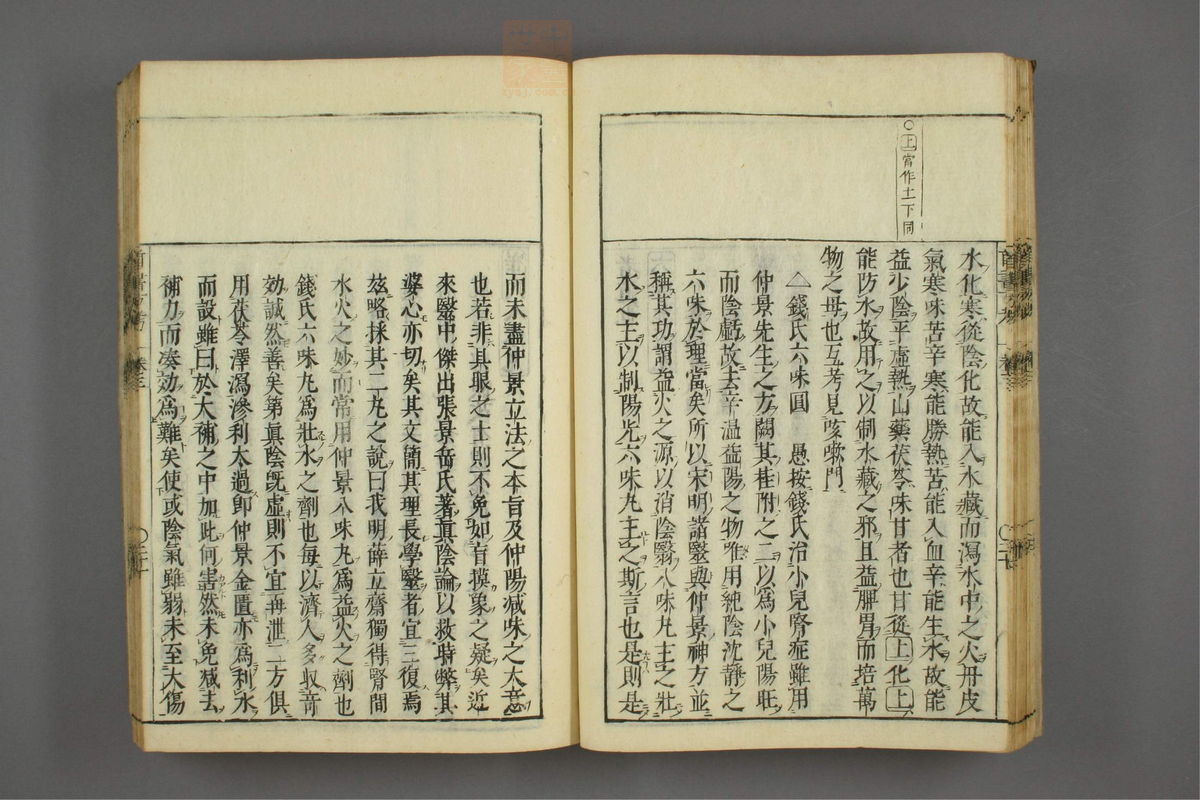 ○上當作土下同
水化寒從陰化故能入水藏而瀉水中之火丹皮
氣寒味苦辛寒能勝熱苦能入血辛能生水故能
益少陰平虛熱山藥茯苓味甘者也甘從上化上
能防水故用之以制水藏之邪且益脾胃而培萬
物之母也互考見咳嗽門
△錢氏六味圓　愚按錢氏治小兒腎症雖用
仲景先生之方闕其桂附之二以為小兒陽旺
而陰虧故去辛温益陽之物唯用純陰沈靜之
六味於理當矣所以宋明諸醫與仲景神方並
稱其功謂益火之源以消陰翳八味丸主之壯
水之主以制陽光六味丸主之斯言也是則是
而未盡仲景立法之本旨及仲陽減味之大意
也若非具眼之士則不免如盲摸象之疑矣近
來醫中傑出張景岳氏著眞陰論以救時弊其
婆心亦切矣其文簡其理長學醫者宜三復焉
玆略採其二丸之說曰我明薛立齋獨得腎間
水火之妙而常用仲景八味丸為益火之劑也
錢氏六味丸為壯水之劑也每以濟人多収竒
効誠然善矣第眞陰旣虛則不宜再泄二方俱
用茯苓澤瀉滲利太過卽仲景金匱亦為利水
而設雖曰於大補之中加此何害然未免減去
補力而凑効為難矣使或陰氣雖弱未至大傷